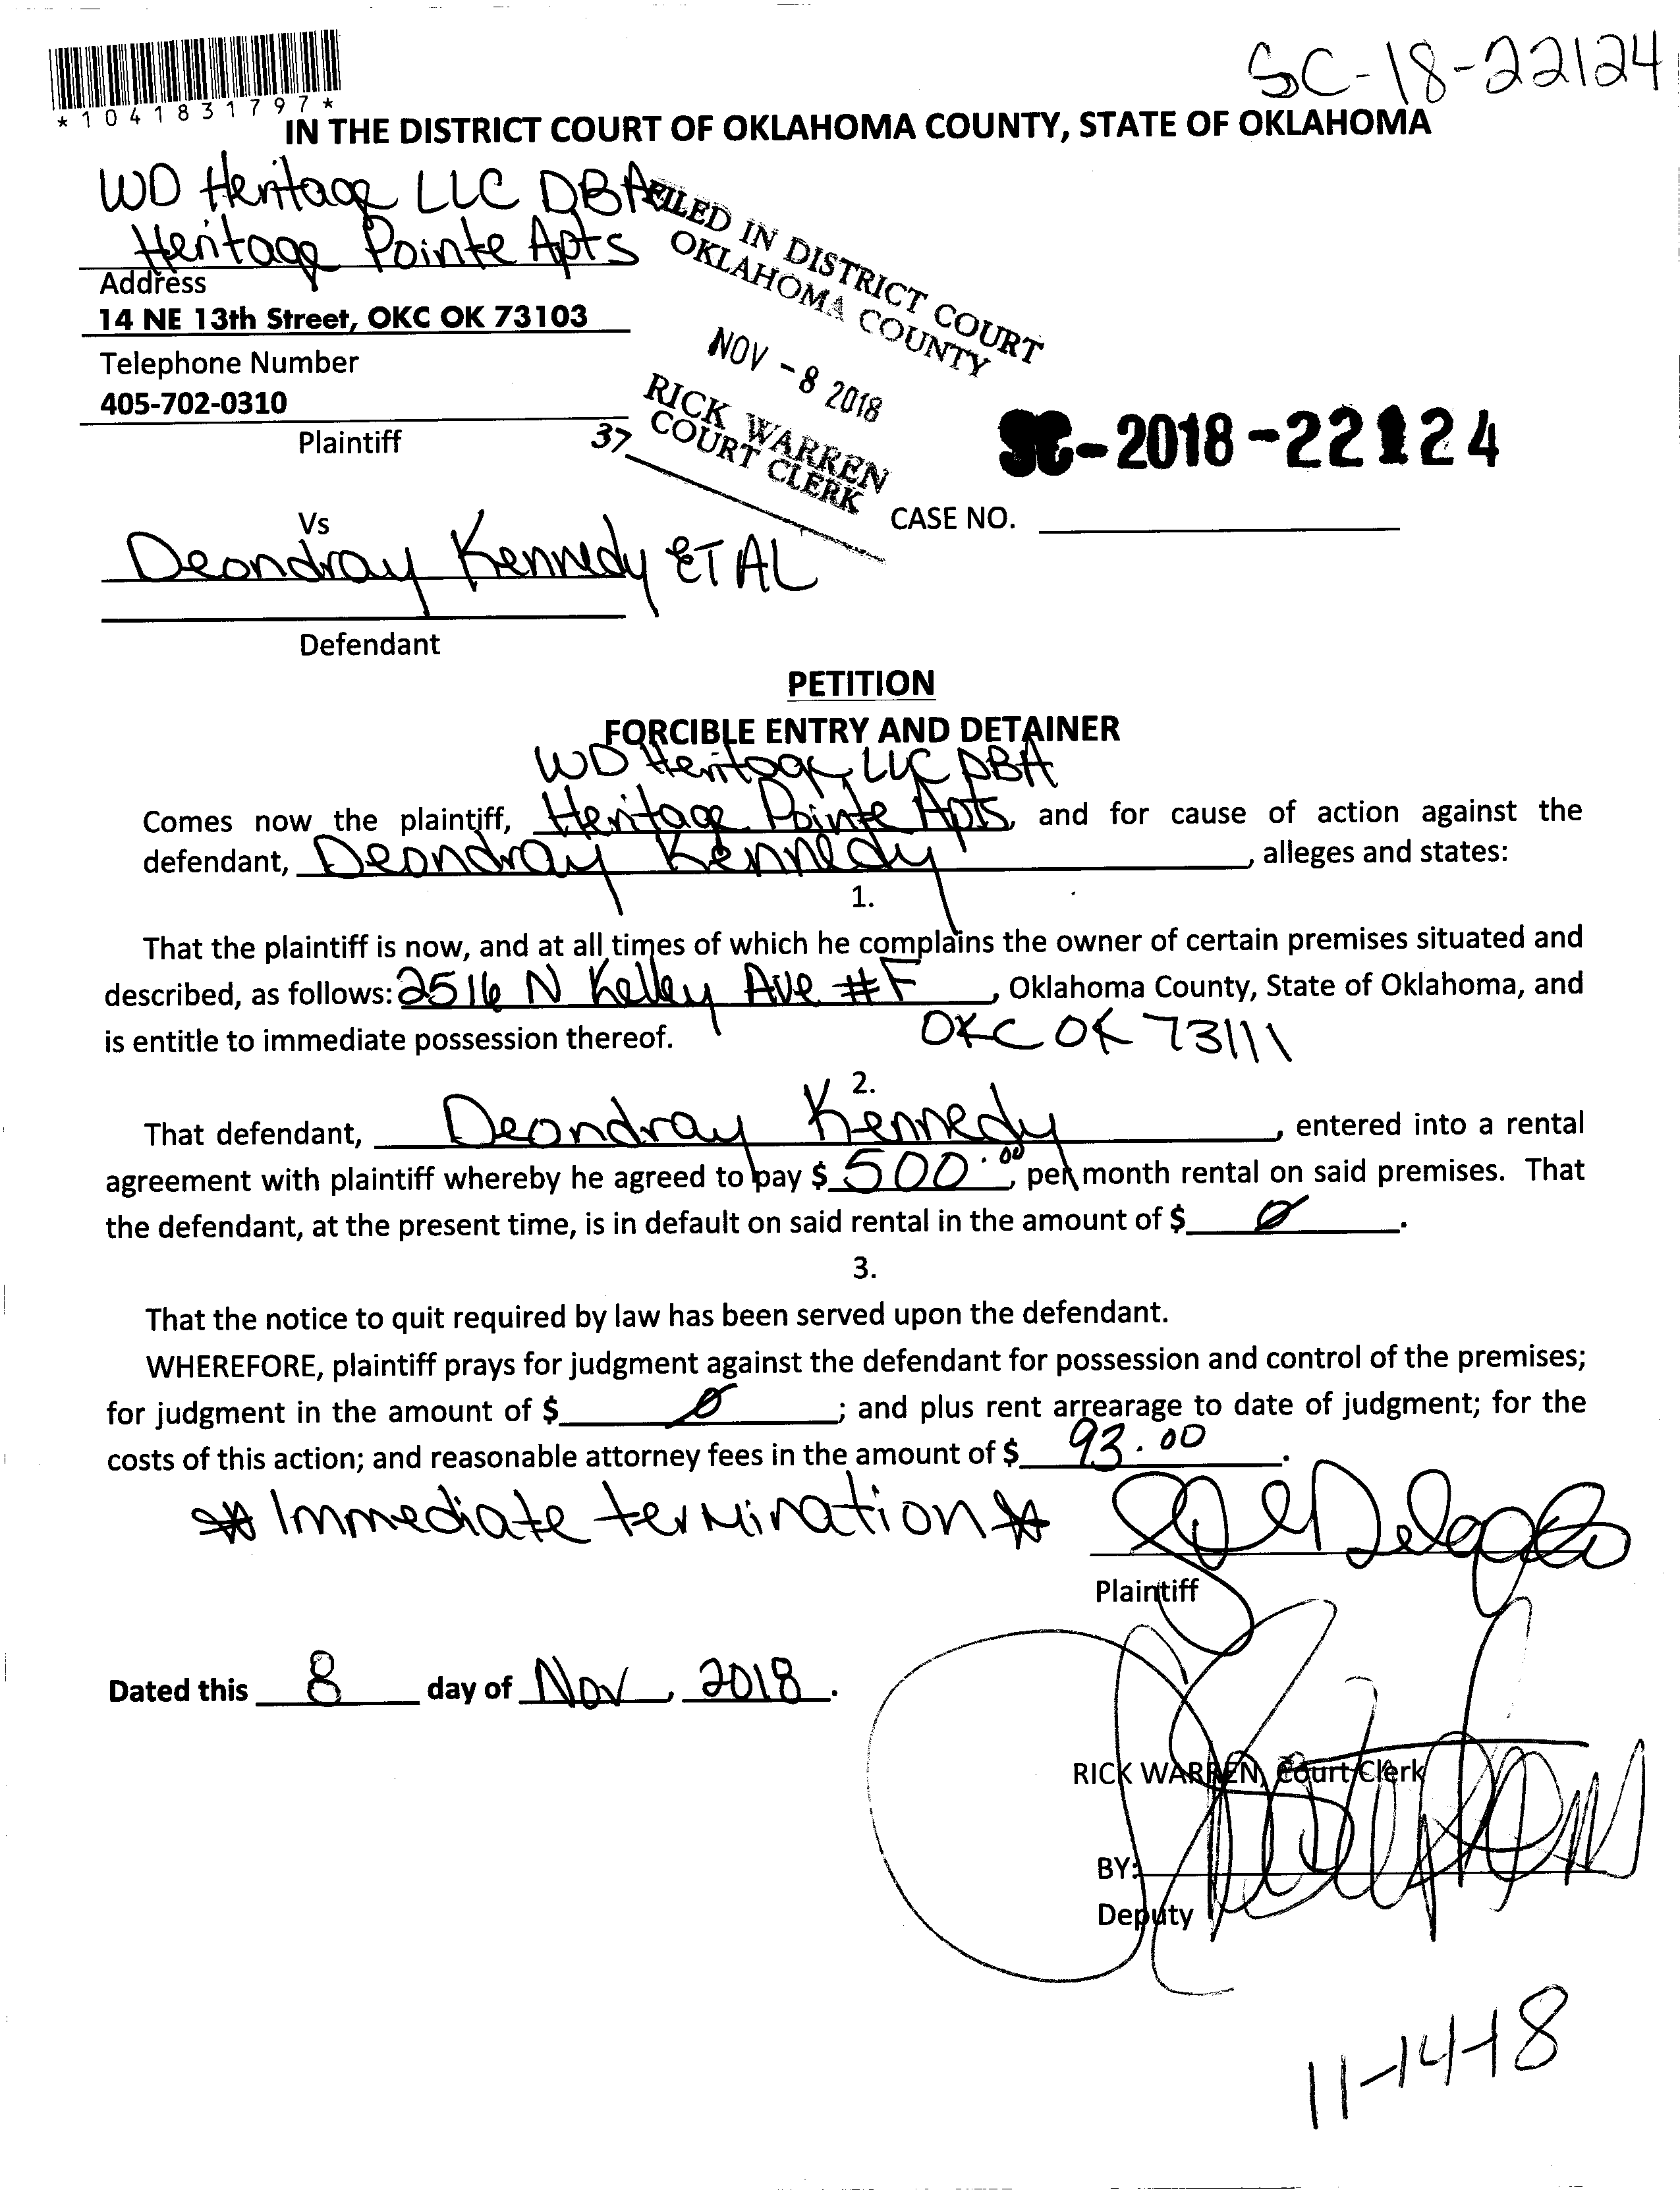 SC-18-22124
*1041831797*
IN THE DISTRICT COURT OF OKLAHOMA COUNTY, STATE OF OKLAHOMA
WD Heritage LLC DBA
Heritage Pointe Apts
Address
14 NE 13th Street, OKC OK 73103
Telephone Number
405-702-0310
Plaintiff
FILED IN DISTRICT COURT
OKLAHOMA COUNTY
NOV -8 2018
RICK WARREN
COURT CLERK
37
SC-2018-22124
CASE NO.
Vs
Deondray Kennedy ET AL
Defendant
PETITION
FORCIBLE ENTRY AND DETAINER
WD Heritage LLC DBA
Comes now the plaintiff, Heritage Pointe Apts, and for cause of action against the
defendant, Deondray Kennedy, alleges and states:
1.
That the plaintiff is now, and at all times of which he complains the owner of certain premises situated and
described, as follows: 2516 N Kelley Ave #F, Oklahoma County, State of Oklahoma, and
is entitle to immediate possession thereof. OKC OK 73111
2.
That defendant, Deondray Kennedy, entered into a rental
agreement with plaintiff whereby he agreed to pay $ 500.00, per month rental on said premises. That
the defendant, at the present time, is in default on said rental in the amount of $ Ø.
3.
That the notice to quit required by law has been served upon the defendant.
WHEREFORE, plaintiff prays for judgment against the defendant for possession and control of the premises;
for judgment in the amount of $ Ø; and plus rent arrearage to date of judgment; for the
costs of this action; and reasonable attorney fees in the amount of $ 93.00.
* Immediate termination *
Plaintiff
Dated this 8 day of Nov, 2018.
RICK WARREN, Court Clerk
BY:
Deputy
11-14-18